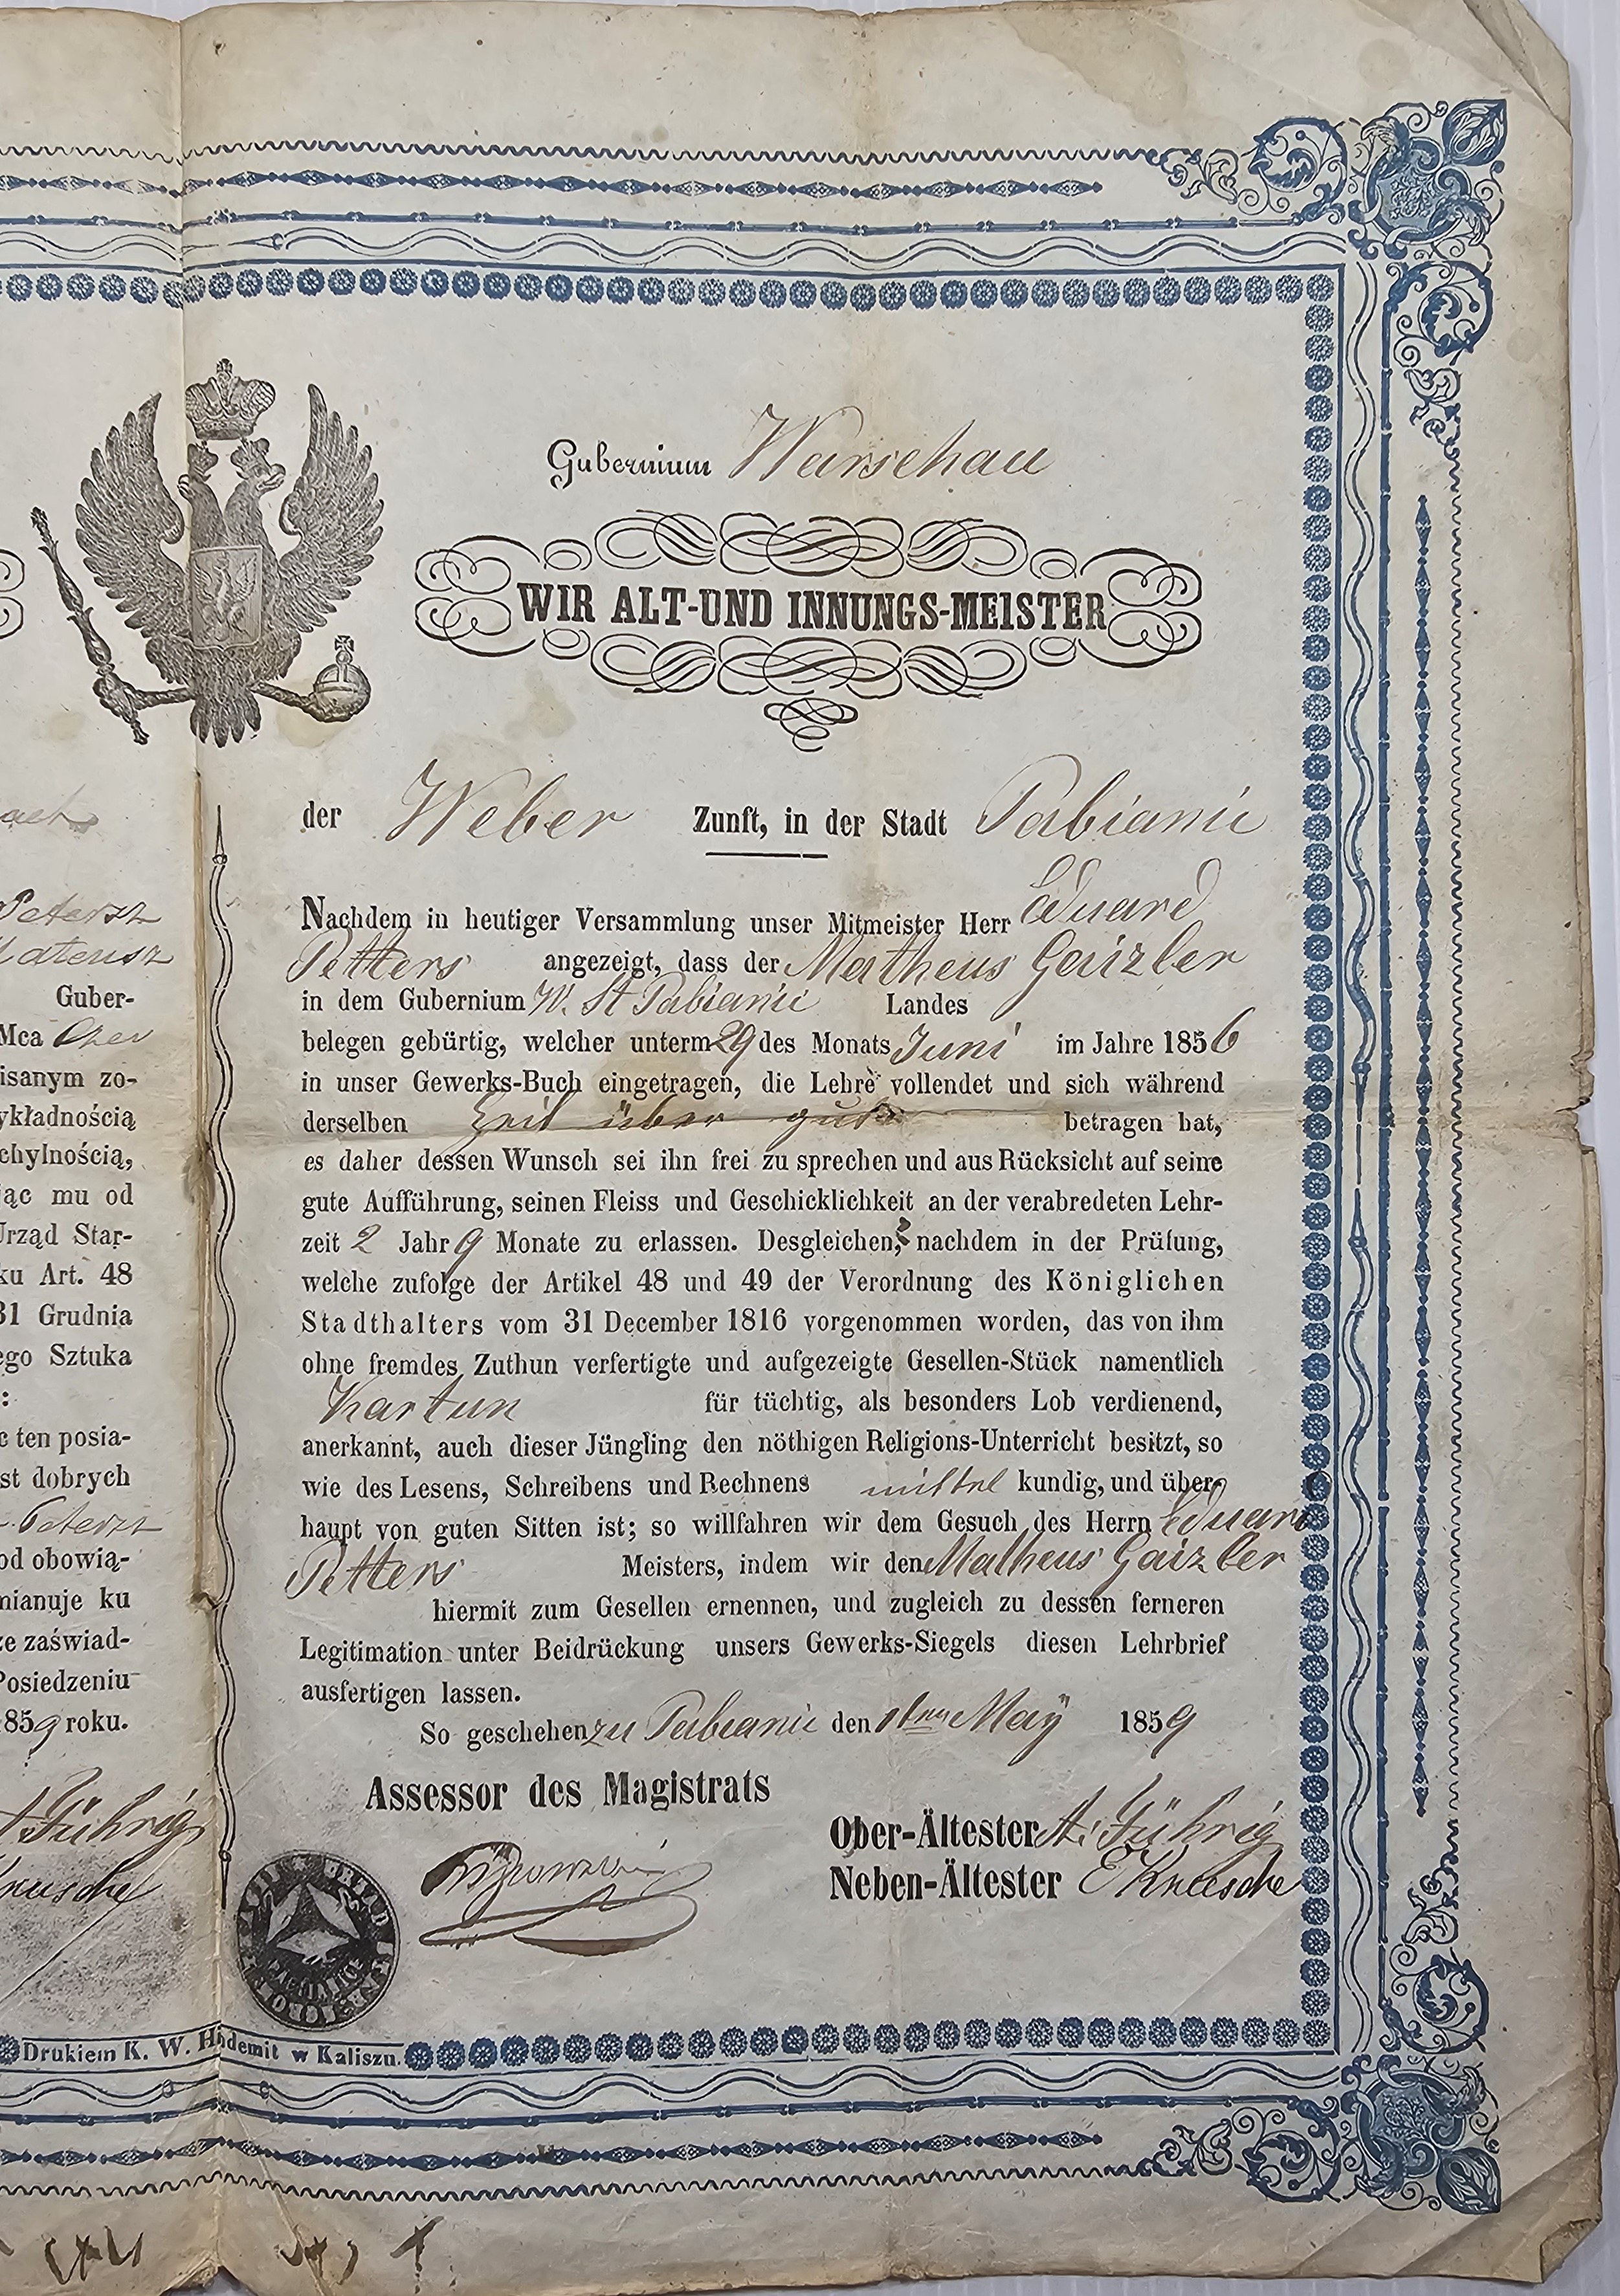 Petersz
Mateusz
Guber-
Mca Cze
isanym zo-
ykładnością
chylnością,
jąc mu od
Urząd Star-
ku Art. 48
31 Grudnia
ego Sztuka
:
c ten posia-
st dobrych
Petersz
od obowią-
mianuje ku
ze zaświad-
Posiedzeniu
859 roku.
A Führig
Knusche
Gubernium Warschau
WIR ALT-UND INNUNGS-MEISTER
der Weber Zunft, in der Stadt Pabianic
Nachdem in heutiger Versammlung unser Mitmeister Herr Eduard
Petters angezeigt, dass der Matheus Gaizler
in dem Gubernium W. St Pabianic Landes
belegen gebürtig, welcher unterm 29 des Monats Juni im Jahre 1856
in unser Gewerks-Buch eingetragen, die Lehre vollendet und sich während
derselben Zeit über gut betragen hat,
es daher dessen Wunsch sei ihn frei zu sprechen und aus Rücksicht auf seine
gute Aufführung, seinen Fleiss und Geschicklichkeit an der verabredeten Lehr-
zeit 2 Jahr 9 Monate zu erlassen. Desgleichen, nachdem in der Prüfung,
welche zufolge der Artikel 48 und 49 der Verordnung des Königlichen
Stadthalters vom 31 December 1816 vorgenommen worden, das von ihm
ohne fremdes Zuthun verfertigte und aufgezeigte Gesellen-Stück namentlich
Kartun für tüchtig, als besonders Lob verdienend,
anerkannt, auch dieser Jüngling den nöthigen Religions-Unterricht besitzt, so
wie des Lesens, Schreibens und Rechnens mittel kundig, und über-
haupt von guten Sitten ist; so willfahren wir dem Gesuch des Herrn Eduard
Petters Meisters, indem wir den Matheus Gaizler
hiermit zum Gesellen ernennen, und zugleich zu dessen ferneren
Legitimation unter Beidrückung unsers Gewerks-Siegels diesen Lehrbrief
ausfertigen lassen.
So geschehen zu Pabianic den 1ten May 1859
Assessor des Magistrats
Ober-Ältester A. Führig
Neben-Ältester E Knusche
PABIANICE
Drukiem K. W. Hindemit w Kaliszu.